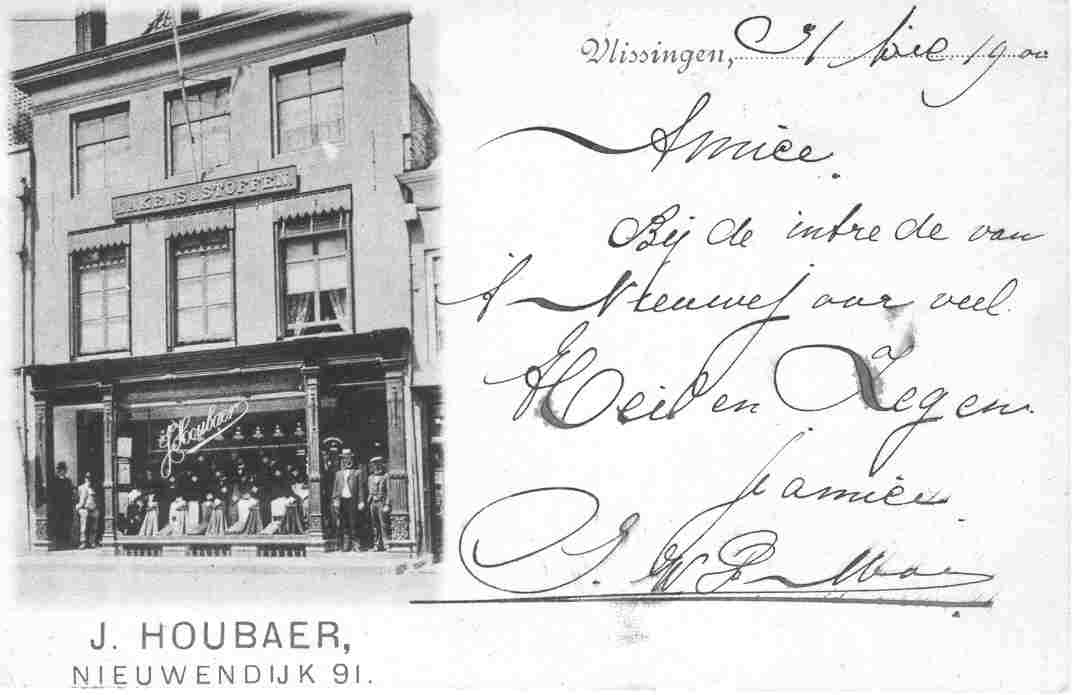 LAKENS & STOFFEN.
J. Houbaer
J. HOUBAER,
NIEUWENDIJK 91.
Vlissingen, 31 Dec 1900
Amice.
Bij de intrede van
't Nieuwejaar veel
Heil en Zegen.
je amice.